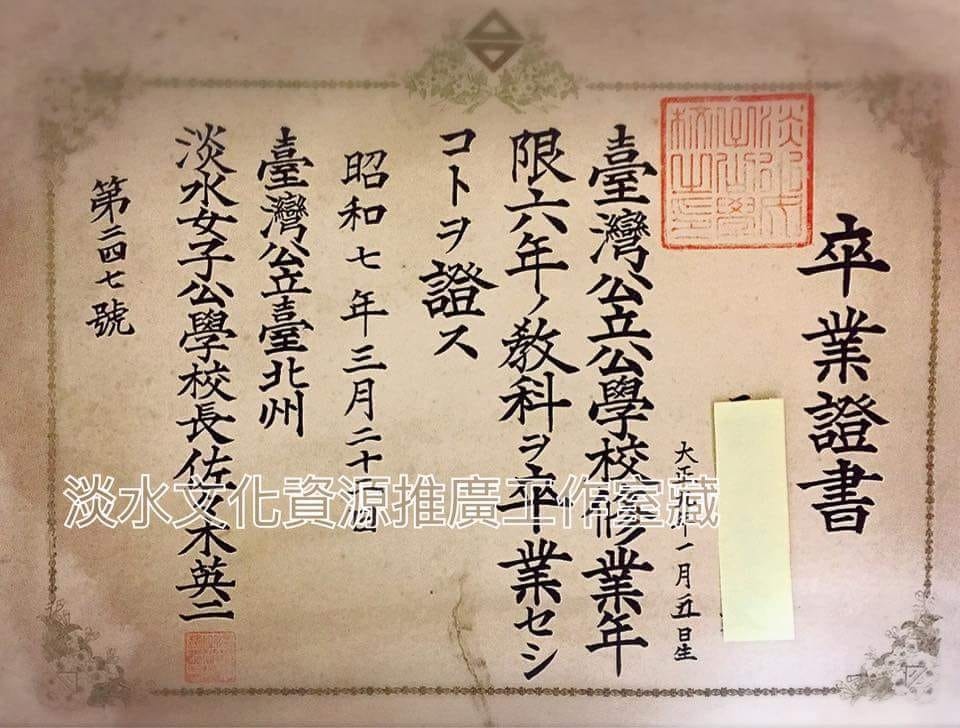 卒業證書
大正 年一月五日生
臺灣公立公學校修業年
限六年ノ教科ヲ卒業セシ
コトヲ證ス
昭和七年三月二十 日
臺灣公立臺北州
淡水女子公學校長佐々木英二
第二四七號
淡水文化資源推廣工作室藏